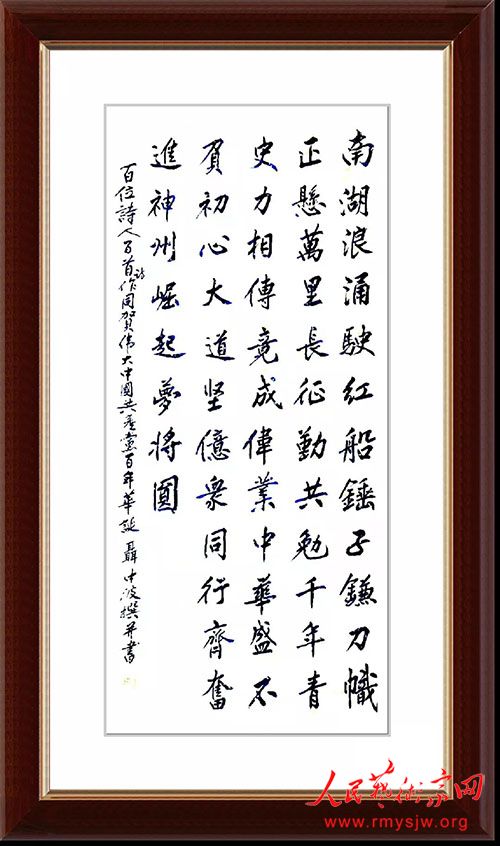 南湖浪涌駛红船錘子鐮刀幟
正懸萬里長征勤共勉千年青
史力相傳竟成偉業中華盛不
負初心大道坚億衆同行齊奮
進神州崛起夢將圓
百位詩人百首詩作同賀伟大中國共產黨百年華誕 聶中波撰并書
人民藝術家网
www.rmysjw.org